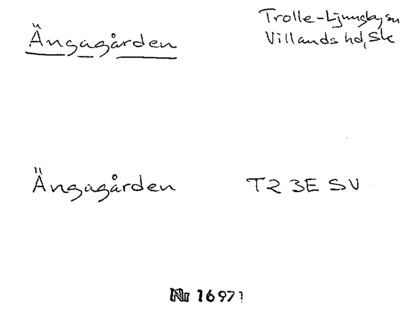 Ängagården
Trolle-Ljungby sn
Villands hd, Sk
Ängagården T2 3E SV
Nr 16971